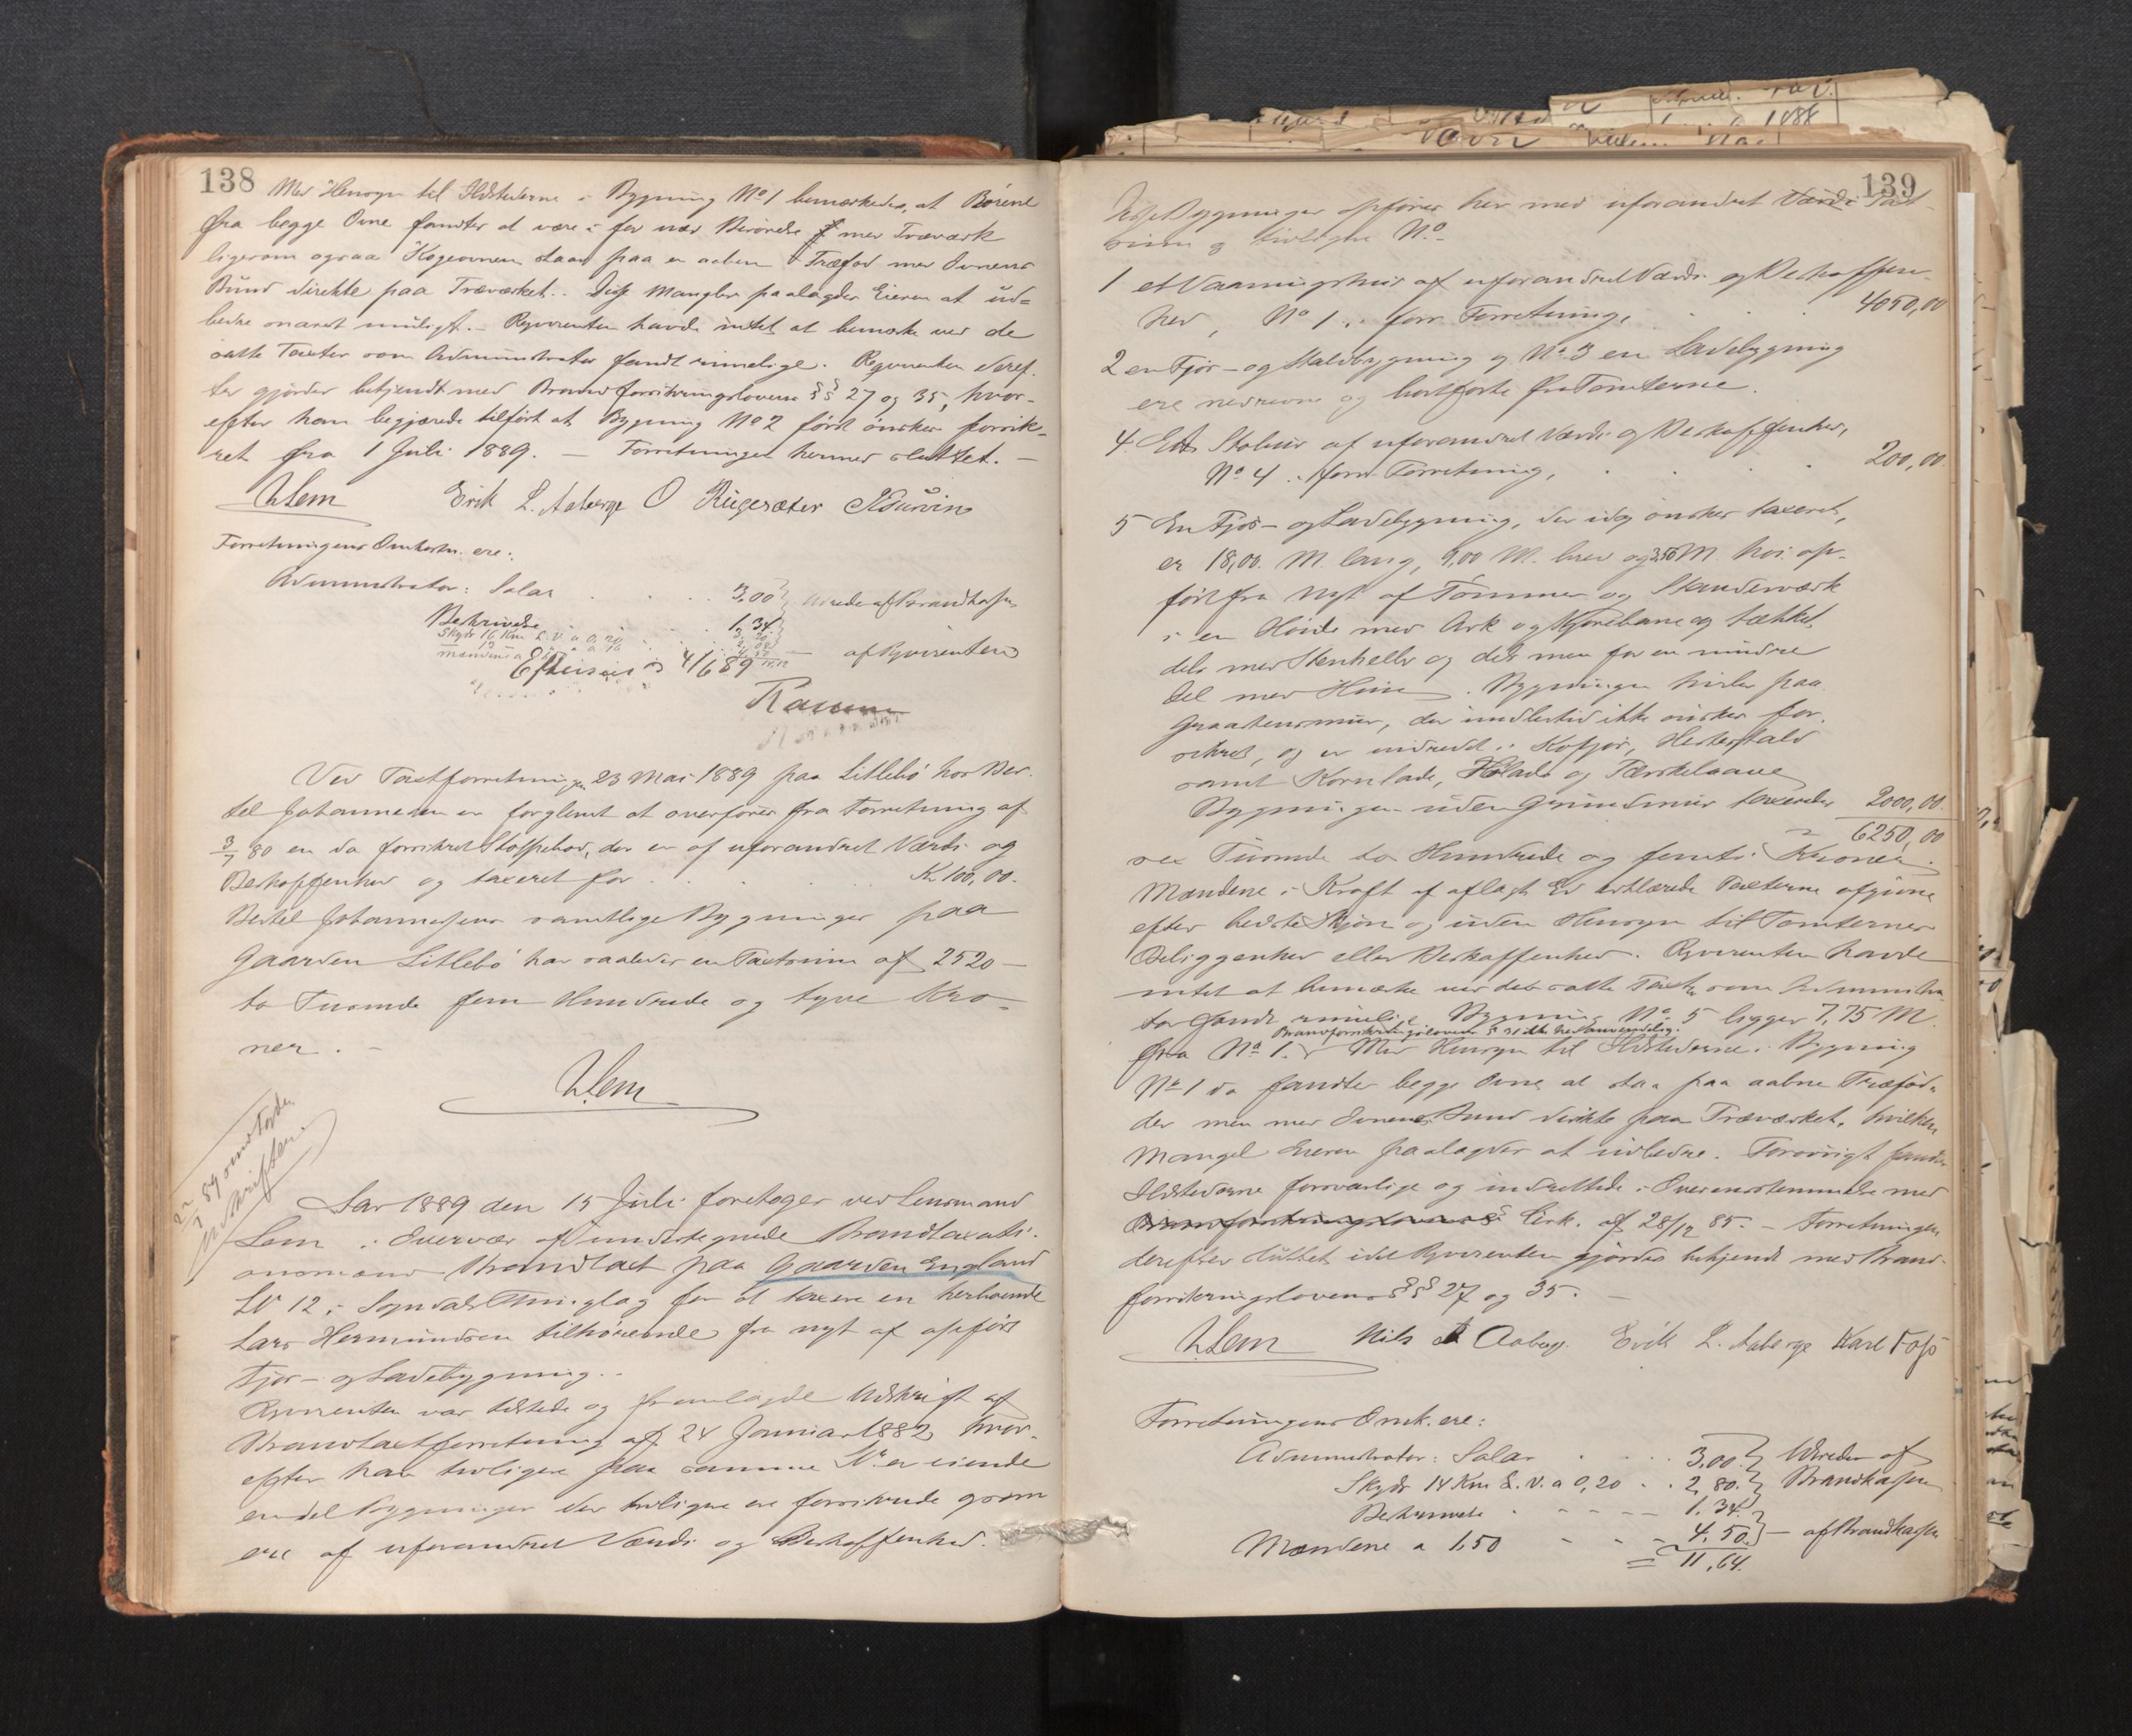 138
Med Hensyn til Ildstederne i Bygning No 1 bemærkedes, at Rörene
fra begge Ovne fandtes at være i for nær Berörelse med Træværk
ligesom ogsaa Kogeovnen staar paa en aaben Træfod med Ovnens
Bund direkte paa Træværket. Disse Mangler paalagdes Eieren at ud=
bedre snarest muligt. – Reqvirenten havde intet at bemærke ved de
satte Taxter som Administrator fandt rimelige. Reqvirenten deref-
ter gjordes bekjendt med Brandforsikringslovens §§ 27 og 35, hvor-
efter han begjærede tilført at Bygning No 2 först önskes forsik-
ret fra 1 Juli 1889. – Forretningen hermed sluttet. –
Lem Erik L. Aaberge O Rügesæter
Forretningens Omkostn. ere:
Administrator: Salar . . . . 3,00 Udredes af Brandkassen
Beskrivelse . . . 1,34
Skyds 16 Km L. V. a 0,20
Mændene a
4/6 89 — af Reqvirenten
Ved Taxtforretningen 23 Mai 1889 paa Litlebö hos Ber-
tel Johannessen er forglemt at overföres fra Forretning af
3/7 80 en da forsikret Stöpebod, der er af uforandret Værdi og
Beskaffenhed og taxeret for . . . . K 100,00.
Bertel Johannessens samtlige Bygninger paa
Gaarden Litlebö har saaledes en Taxtsum af 2520 –
to Tusinde fem Hundrede og tyve Kro-
ner. –
Lem
Aar 1889 den 15 Juli foretoges ved Lensmand
Lem i Overvær af undertegnede Brandtaxati-
onsmænd Brandtaxt paa Gaarden England
LN 12 i Sogndals Thinglag for at taxere en herboende
Lars Hermundsen tilhörende fra nyt af opfört
Fjös- og Ladebygning. –
Reqvirenten var tilstede og fremlagde Udskrift af
Brandtaxtforretning af 24 Januar 1882, hvor-
efter han tidligere paa samme No er eiende
endel Bygninger der tidligere ere forsikrede og som
ere af uforandret Værdi og Beskaffenhed.
139
Disse Bygninger opföres her med uforandret Værdi Taxt-
sum og tidligere No
1 et Vaaningshus af uforandret Værdi og Beskaffen-
hed, No 1 i forr. Forretning, . . 4050,00
2 en Fjös- og Staldbygning og No 3 en Ladebygning
ere nedrevne og bortförte fra Tomterne.
4. Et Stabur af uforandret Værdi og Beskaffenhed,
No 4 i forr. Forretning, . . . 200,00
5 En Fjös- og Ladebygning, der idag önskes taxeret,
er 18,00 M. lang, 9,00 M. bred og 3,50 M. höi op-
fört fra nyt af Tömmer og Standerværk
i en Höide med Ark og Kjörebane og tækket
dels med Stenheller og dels men for en mindre
del med . Bygningen hviler paa
Graastensmur, der imidlertid ikke önskes for-
sikret, og er indredet i Kofjös, Hestestald
samt Kornlade, Hölade og Tærskelaave
Bygningen uden Grundmur taxeredes 2000,00
6250,00
sex Tusinde to Hundrede og femti Kroner.
Mændene i Kraft af aflagt Ed erklærede Taxterne afgivne
efter bedste Skjön og uden Hensyn til Tomternes
Beliggenhed eller Beskaffenhed. Reqvirenten havde
intet at bemærke ved den satte Taxt, som Administra-
tor fandt rimelig. Bygning No 5 ligger 7,75 M.
Brandforsikringslovens § 31 ikke her anvendelig.
fra No 1. Med Hensyn til Ildstederne i Bygning
No 1 da fandtes begge Ovne at staa paa aabne Træföd-
der men med Ovnenes Bund direkte paa Træværket, hvilken
Mangel Eieren paalagdes at udbedre. Forövrigt fandtes
Ildstederne forsvarlige og indrettede i Overensstemmelse med
Brandforsikringslovens § Cirk. af 28/12 85. – Forretningen
derefter sluttet idet Reqvirenten gjordes bekjendt med Brand-
forsikringslovens §§ 27 og 35. –
Lem Nils Aaberg. Erik L. Aaberge Karl Foss
Forretningens Omk. ere:
Administrator: Salar . . . 3,00 Udredes af
Skyds 14 Km L. V. a 0,20 . . 2,80 Brandkassen
Beskrivelse . . . 1,34
Mændene a 1,50 . . . 4,50 – af Brandkassen
= 11,64